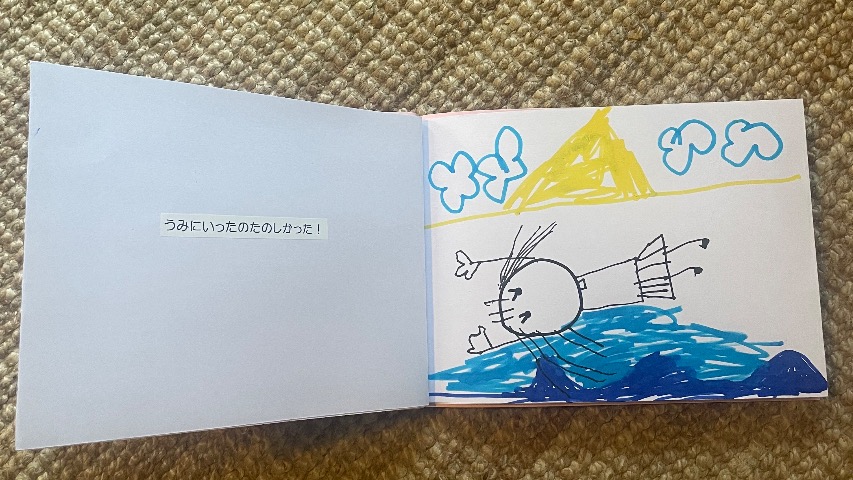 うみにいったのたのしかった！